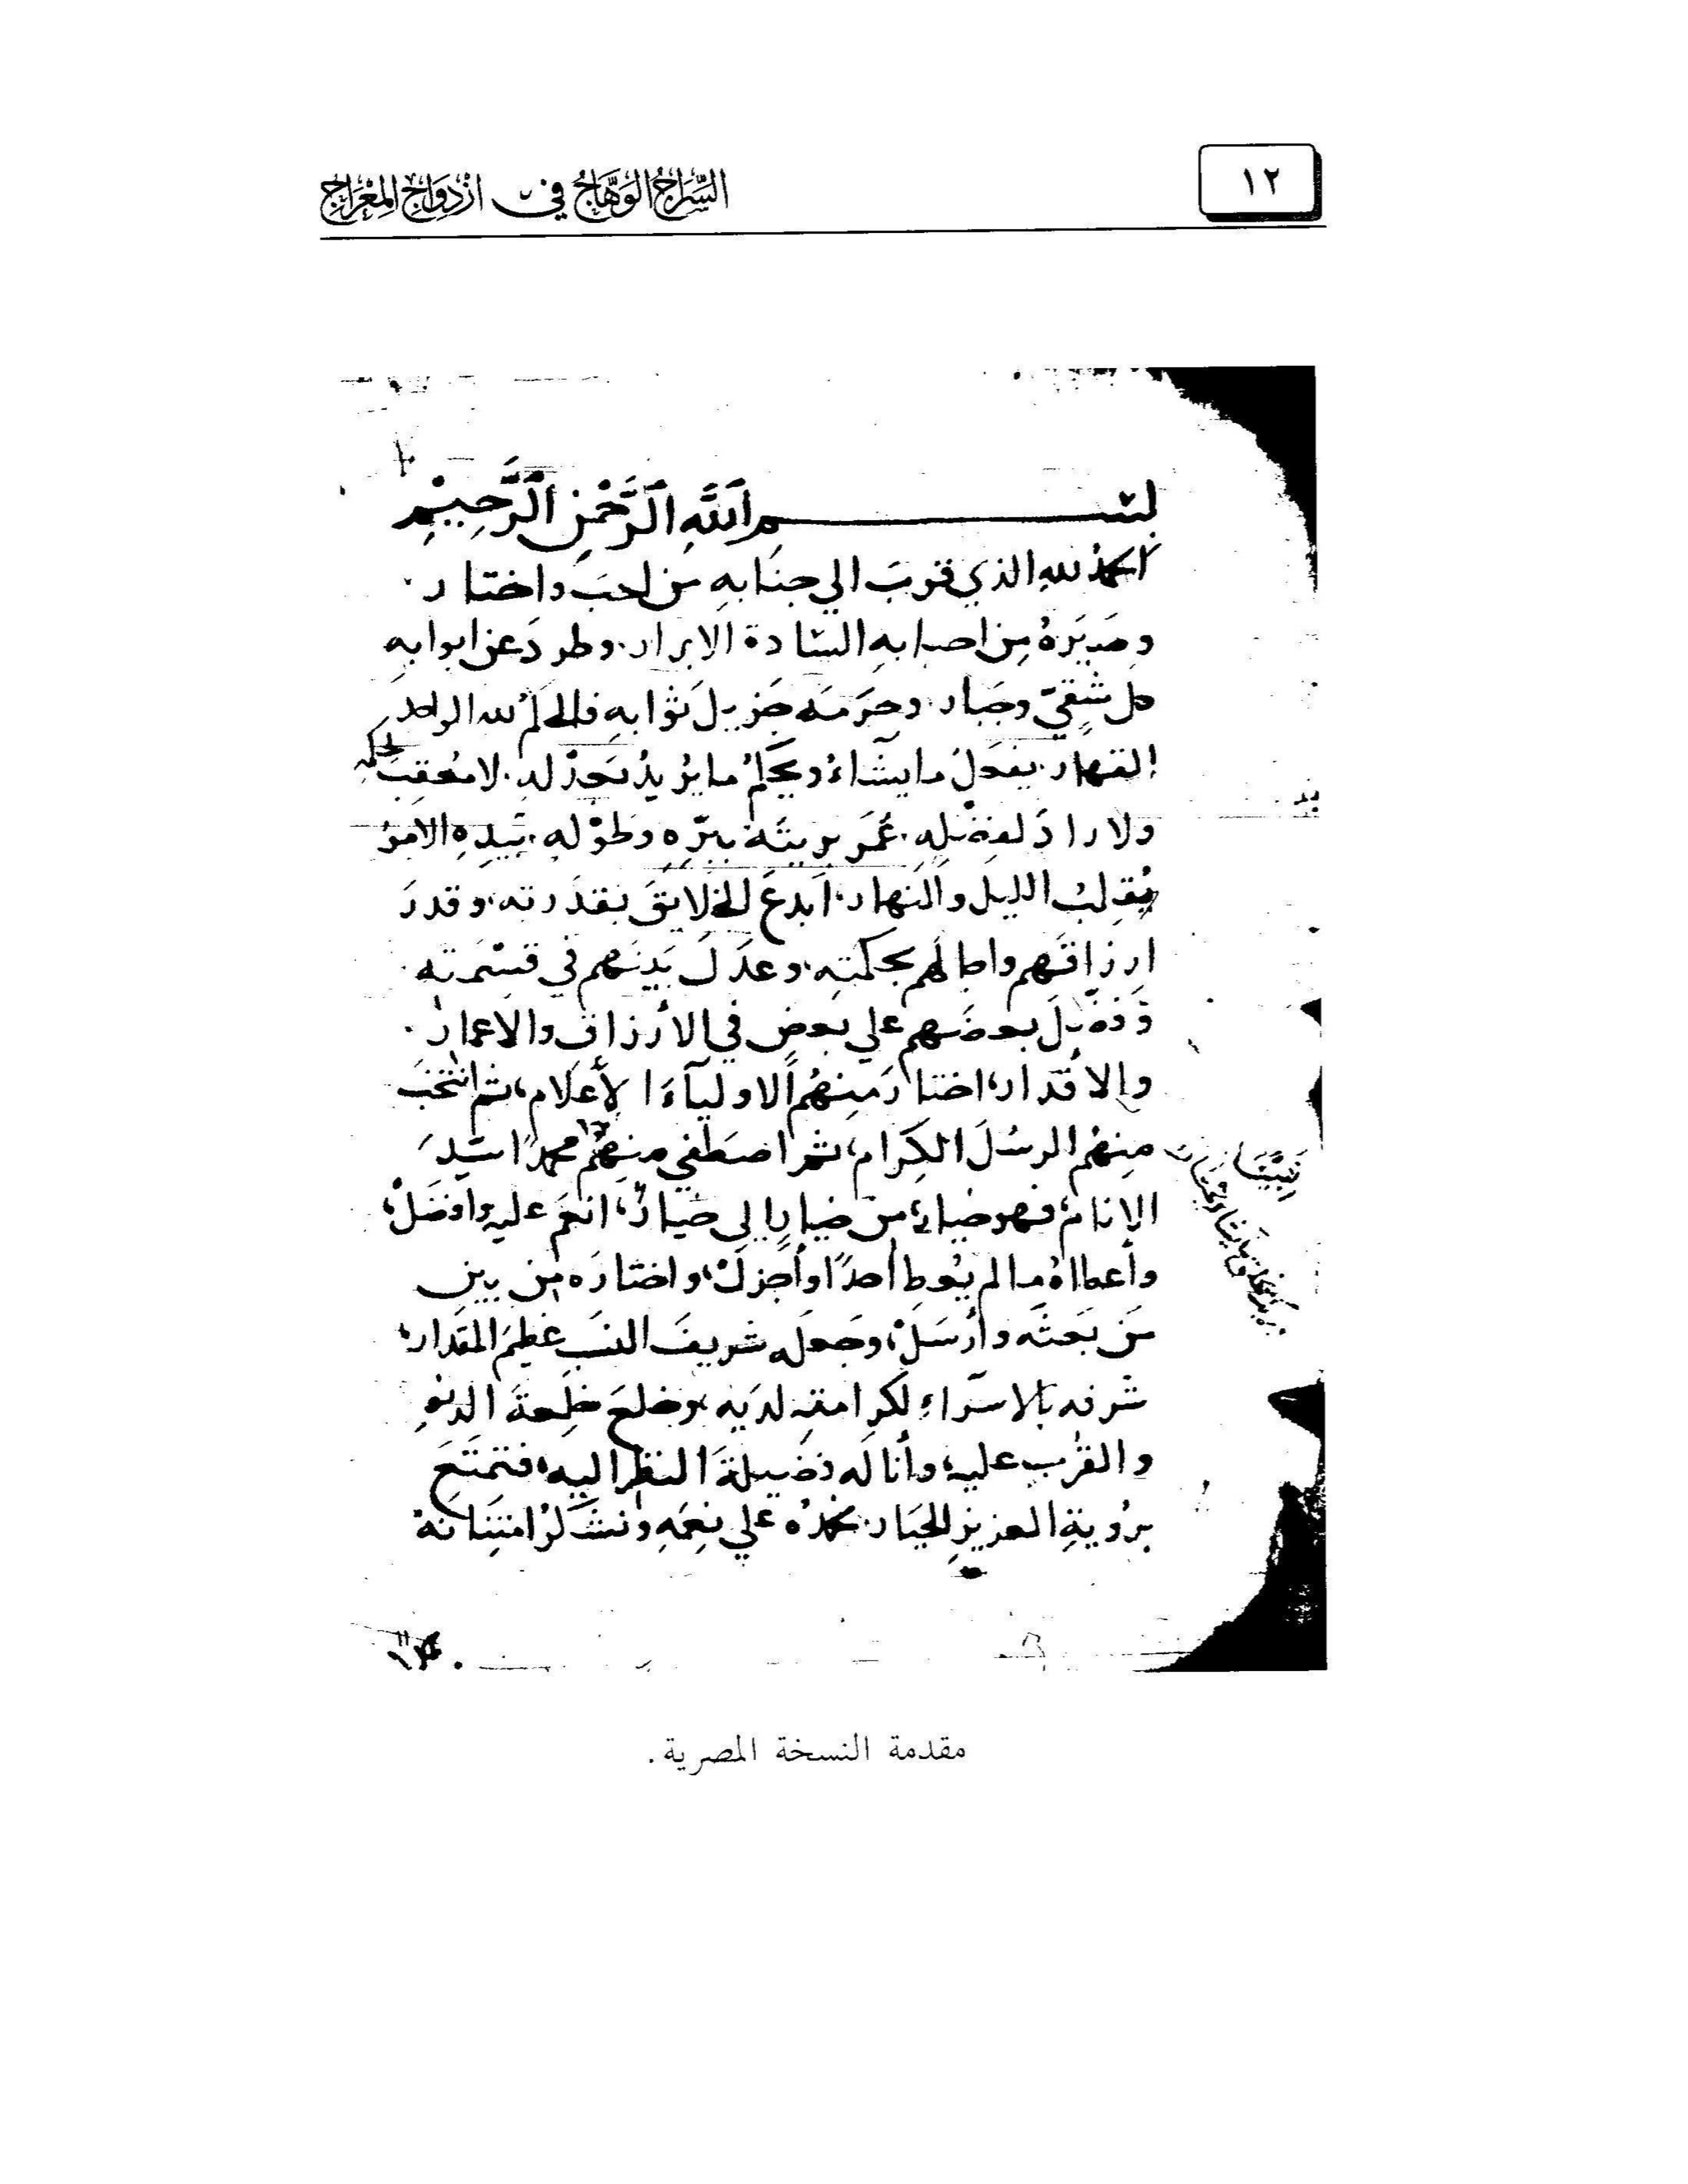 ١٢
السِّرَاجُ الوَهَّاجُ في ازْدِوَاجِ المِعْرَاجِ
بسم الله الرَّحْمٰنِ الرَّحِيمِ
الحمدُ للهِ الذي قربَ الي جنابهِ من احبَ واختار
وصَيَرَهُ مِن احبابهِ السَّادة الابرار وطردَ عن ابوابهِ
كل شقيّ وجبار وحرَمَه جَزيلَ ثوابهِ فالحكمُ لله الواحد
القهار يفعلُ ما يشاءُ ويحكمُ ما يُريدُ بَعدْله لا مُعقبَ
لحكمه
ولا رادَ لفضْلهِ عَمَّ بريتَه ببرِّه وطَوْله بَيدهِ الامورُ
يُقلِبُ الليل والنهار ابدعَ الخلايقَ بقدْرته وقدرَ
ارزاقَهم واجالهم بحكمتهِ وعدَلَ بَينَهم في قسْمَته
وفضّلَ بعضَهم علي بعضٍ في الأرزاق والاعمار
والأقدار اختارَ منهُم الاوليآءَ الأعلام ثم انتخبَ
منهُم الرسُلَ الكِرام ثم اصطَفي منهُم محمدًا سَيّدَ
الانام فهو خيارٌ من خيارٍ الي خيارٌ انعَم عليه وافضلْ
وأعطاهُ ما لم يُعطِ أحدًا وأجزلْ واختارَه من بين
مَن بَعثَه وأرْسَلْ وجعله شريفَ النسَبِ عظيمَ المقدار
شَرفه بالاسرآءِ لكرامته لدَيْه وخلعَ خلعةَ الدنوِ
والقرب عليه وأناله فضيلةَ النظرِ اليه فتمتَّعَ
برُويةِ العزيزِ الجبار نحمدُه علي نِعَمِه ونشكرُ امتنانَهُ
نَبيّنا
مقدمة النسخة المصرية.